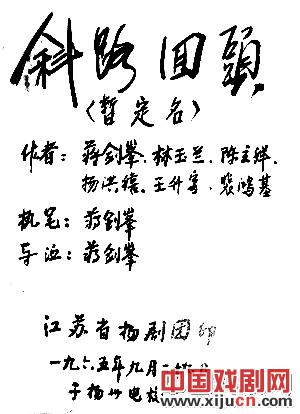 斜路回頭
（暂定名）
作者：蒋剑峯、林玉兰、陈立祥、
杨洪禧、王升宽、裴鸿基
执笔：蒋剑峯
导演：蒋剑峯
江苏省扬剧团印
一九六五年九月二
于扬州
中国戏剧网
www.xijucn.com